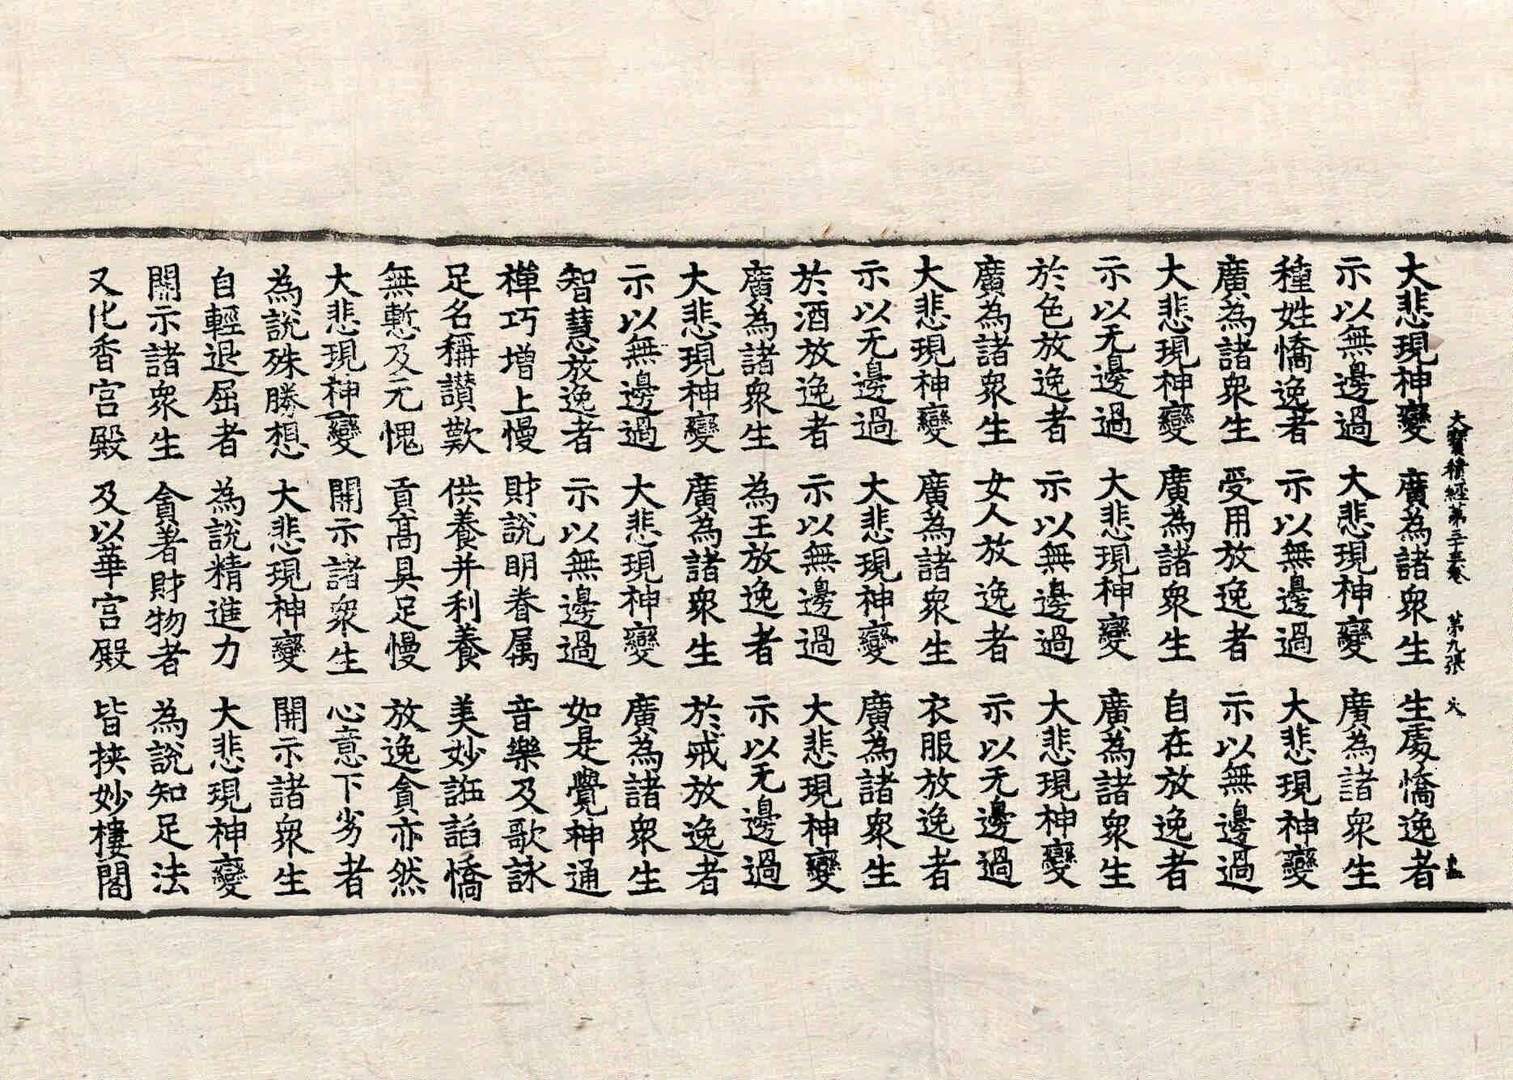 大寶積經第三十五卷 第九張 火
大悲現神變 廣為諸衆生 生處憍逸者
示以無邊過 大悲現神變 廣為諸衆生
種姓憍逸者 示以無邊過 大悲現神變
廣為諸衆生 受用放逸者 示以無邊過
大悲現神變 廣為諸衆生 自在放逸者
示以无邊過 大悲現神變 廣為諸衆生
於色放逸者 示以無邊過 大悲現神變
廣為諸衆生 女人放逸者 示以无邊過
大悲現神變 廣為諸衆生 衣服放逸者
示以无邊過 大悲現神變 廣為諸衆生
於酒放逸者 示以無邊過 大悲現神變
廣為諸衆生 為王放逸者 示以无邊過
大悲現神變 廣為諸衆生 於戒放逸者
示以無邊過 大悲現神變 廣為諸衆生
智慧放逸者 示以無邊過 如是覺神通
禪巧增上慢 財說明眷属 音樂及歌詠
足名稱讃歎 供養并利養 美妙誑諂憍
無慙及无愧 貢高具足慢 放逸貪亦然
大悲現神變 開示諸衆生 心意下劣者
為說殊勝想 大悲現神變 開示諸衆生
自輕退屈者 為說精進力 大悲現神變
開示諸衆生 貪著財物者 為說知足法
又化香宮殿 及以華宮殿 皆挾妙樓閣